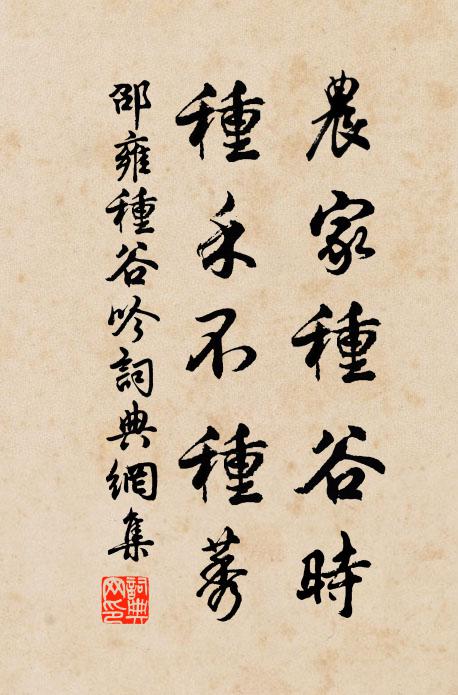 農家種谷時
種禾不種莠
邵雍種谷吟詞典網集
詞典網印